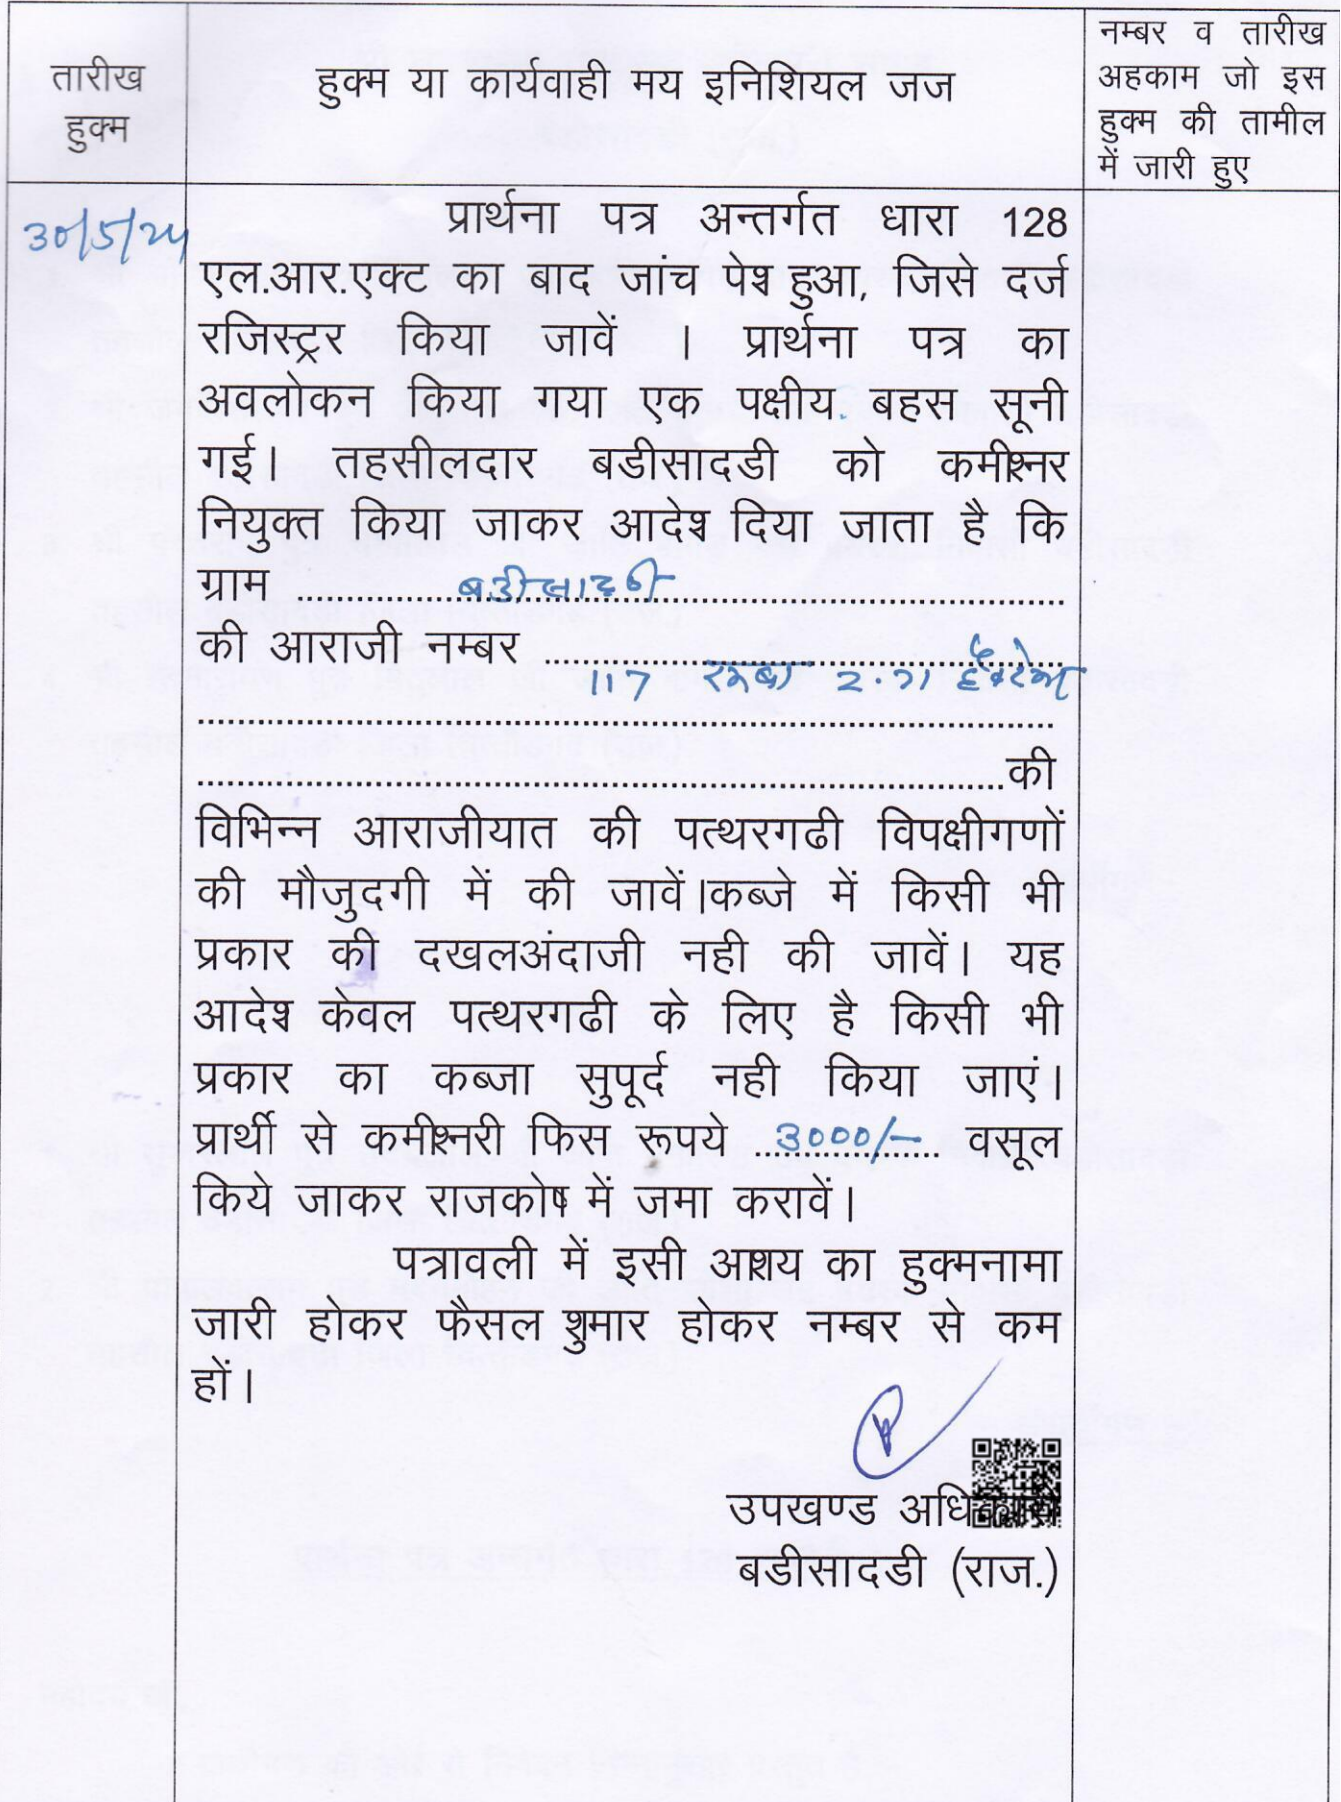 तारीख
हुक्म
हुक्म या कार्यवाही मय इनिशियल जज
नम्बर व तारीख
अहकाम जो इस
हुक्म की तामील
में जारी हुए
30/5/24
प्रार्थना पत्र अन्तर्गत धारा 128
एल.आर.एक्ट का बाद जांच पेश हुआ, जिसे दर्ज
रजिस्ट्रर किया जावें । प्रार्थना पत्र का
अवलोकन किया गया एक पक्षीय बहस सूनी
गई। तहसीलदार बडीसादडी को कमीश्नर
नियुक्त किया जाकर आदेश दिया जाता है कि
ग्राम .......... बडीसादडी ..........
की आराजी नम्बर ..........
117 रकबा 2.71 हेक्टेयर
..........
..........की
विभिन्न आराजीयात की पत्थरगढी विपक्षीगणों
की मौजुदगी में की जावें।कब्जे में किसी भी
प्रकार की दखलअंदाजी नही की जावें। यह
आदेश केवल पत्थरगढी के लिए है किसी भी
प्रकार का कब्जा सुपूर्द नही किया जाएं।
प्रार्थी से कमीश्नरी फिस रूपये 3000/- वसूल
किये जाकर राजकोष में जमा करावें।
पत्रावली में इसी आशय का हुक्मनामा
जारी होकर फैसल शुमार होकर नम्बर से कम
हों।
उपखण्ड
बडीसादडी (राज.)